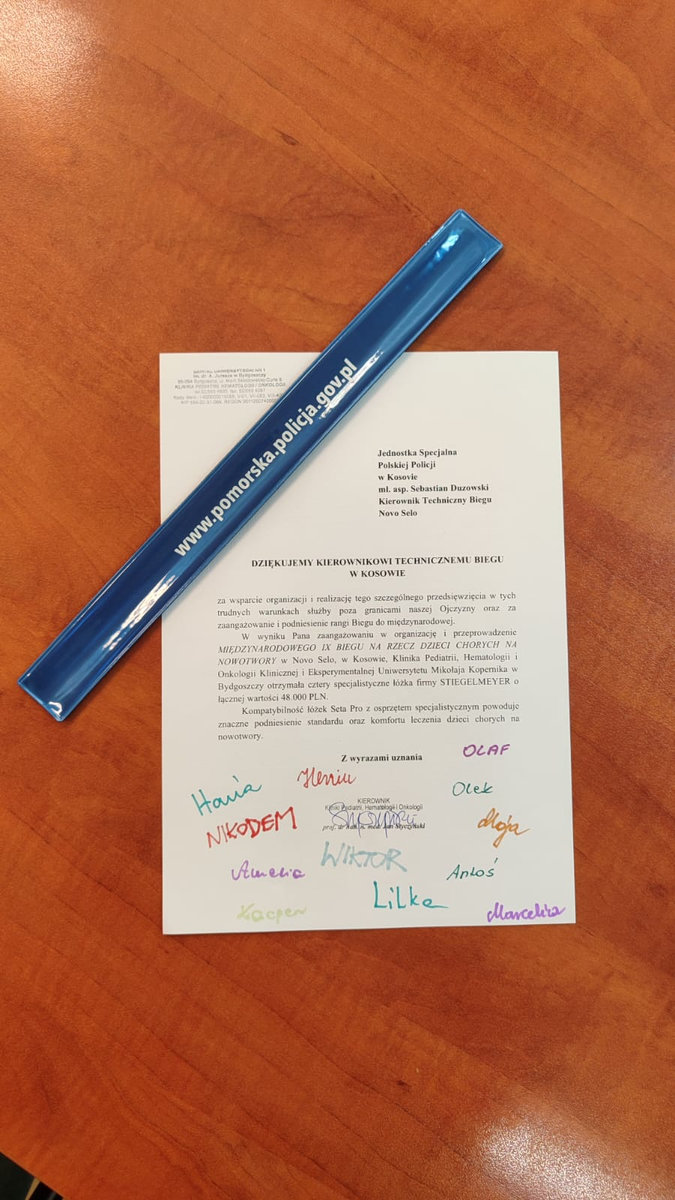 SZPITAL UNIWERSYTECKI NR 1
im. dr. A. Jurasza w Bydgoszczy
85-094 Bydgoszcz, ul. Marii Skłodowskiej-Curie 9
KLINIKA PEDIATRII, HEMATOLOGII I ONKOLOGII
www.pomorska.policja.gov.pl
Jednostka Specjalna
Polskiej Policji
w Kosovie
mł. asp. Sebastian Duzowski
Kierownik Techniczny Biegu
Novo Selo
DZIĘKUJEMY KIEROWNIKOWI TECHNICZNEMU BIEGU
W KOSOWIE
za wsparcie organizacji i realizację tego szczególnego przedsięwzięcia w tych
trudnych warunkach służby poza granicami naszej Ojczyzny oraz za
zaangażowanie i podniesienie rangi Biegu do międzynarodowej.
W wyniku Pana zaangażowaniu w organizację i przeprowadzenie
MIĘDZYNARODOWEGO IX BIEGU NA RZECZ DZIECI CHORYCH NA
NOWOTWORY w Novo Selo, w Kosowie, Klinika Pediatrii, Hematologii i
Onkologii Klinicznej i Eksperymentalnej Uniwersytetu Mikołaja Kopernika w
Bydgoszczy otrzymała cztery specjalistyczne łóżka firmy STIEGELMEYER o
łącznej wartości 48.000 PLN.
Kompatybilność łóżek Seta Pro z osprzętem specjalistycznym powoduje
znaczne podniesienie standardu oraz komfortu leczenia dzieci chorych na
nowotwory.
Z wyrazami uznania
OLAF
Hania
Heniu
Olek
KIEROWNIK
Kliniki Pediatrii, Hematologii i Onkologii
prof. dr hab. n. med. Jan Styczyński
NIKODEM
Maja
WIKTOR
Amelia
Antoś
Kacper
Lilka
Marcelina